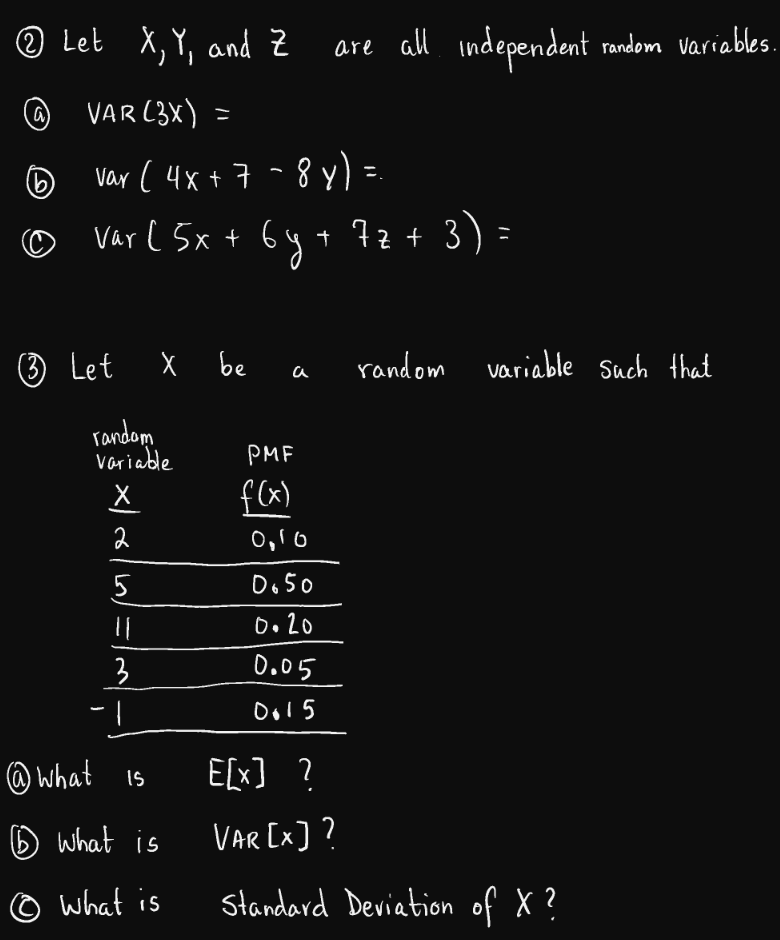 ② Let X, Y, and Z are all independent random variables.
ⓐ VAR(3X) =
ⓑ var(4x + 7 - 8y) =.
ⓒ Var(5x + 6y + 7z + 3) =
③ Let X be a random variable such that
random
variable PMF
X f(x)
2 0.10
5 0.50
11 0.20
3 0.05
-1 0.15
ⓐ What is E[x] ?
ⓑ What is VAR[x] ?
ⓒ What is Standard Deviation of X ?